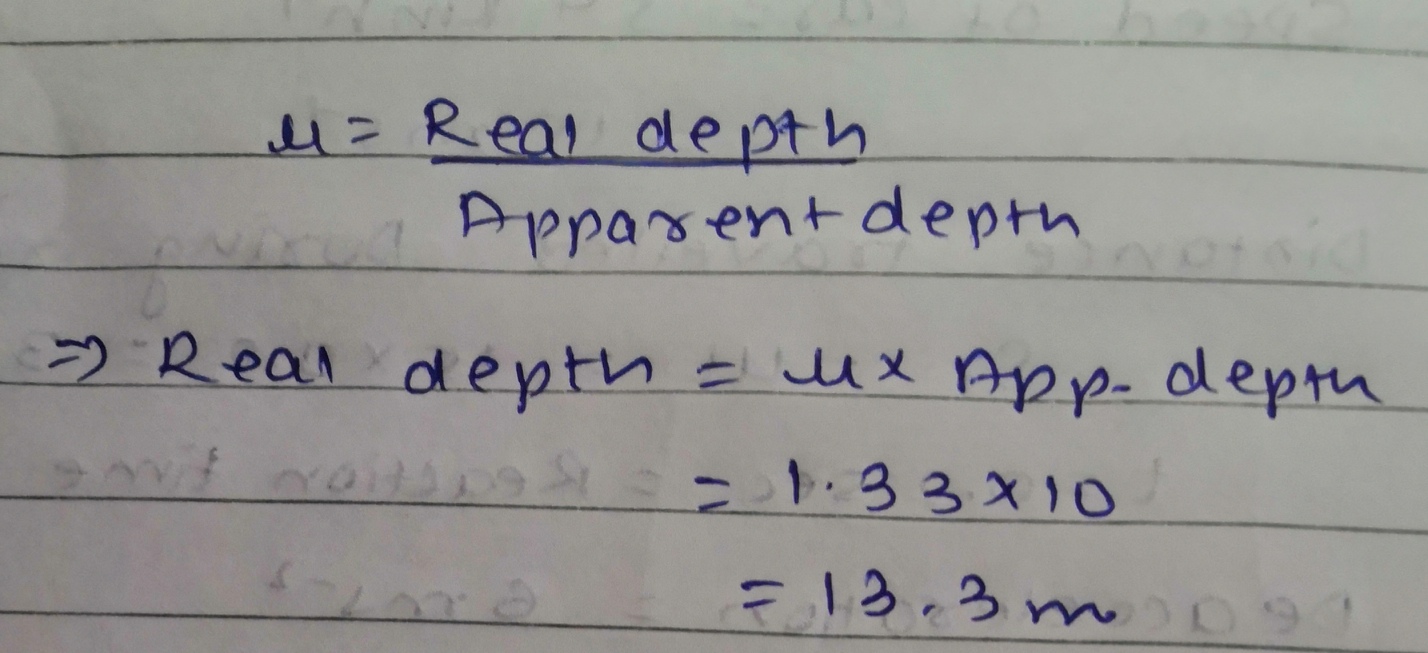 μ = Real depth
Apparent depth
⇒ Real depth = μ x App. depth
= 1.33 x 10
= 13.3 m